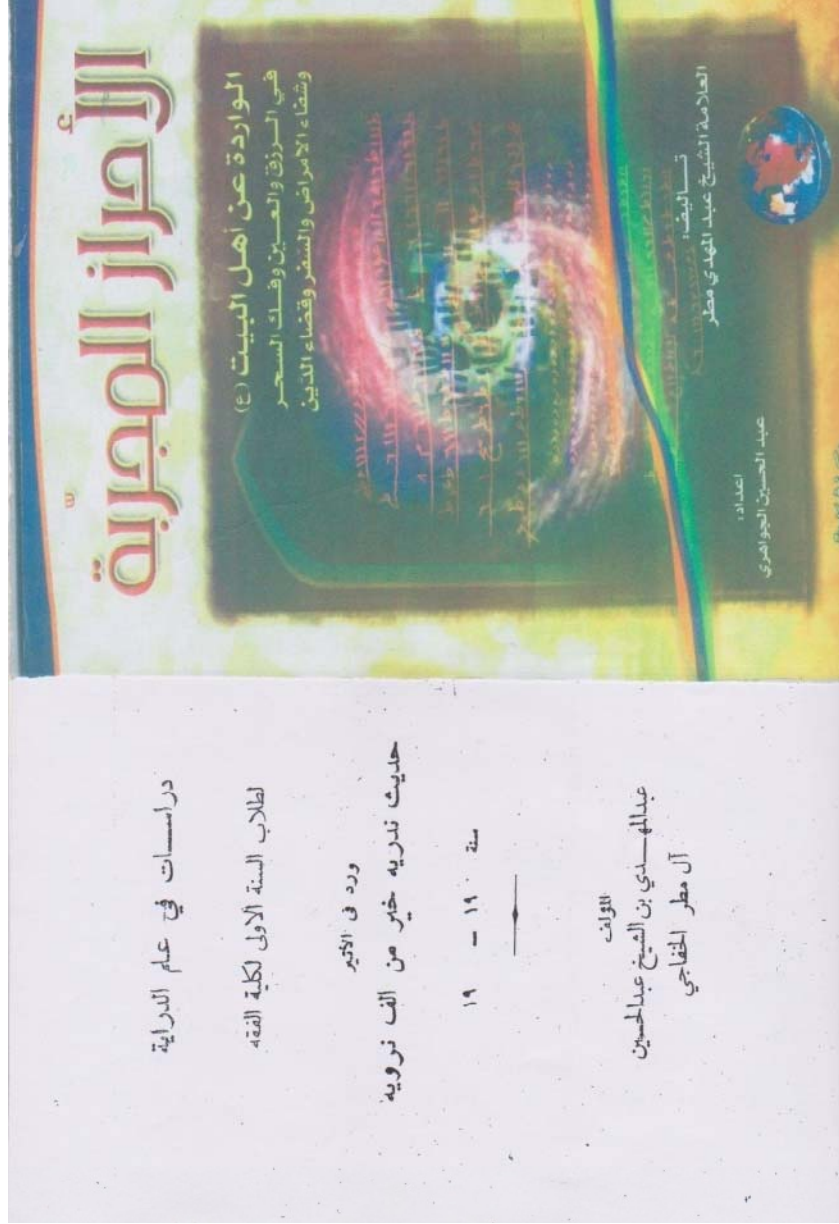 الأحراز المجربّة
الواردة عن أهل البيت (ع)
في الرزق والعين وفك السحر
وشفاء الامراض والسفر وقضاء الدين
تأليف:
العلامة الشيخ عبد المهدي مطر
اعداد:
عبد الحسين الجواهري
دراسات في علم الدراية
لطلاب السنة الاولى لكلية الفقه
ورد في الأثير
حديث ندريه خير من الف نرويه
سنة
١٩ - ١٩
المؤلف
عبدالمهدي بن الشيخ عبدالحسين
آل مطر الخفاجي